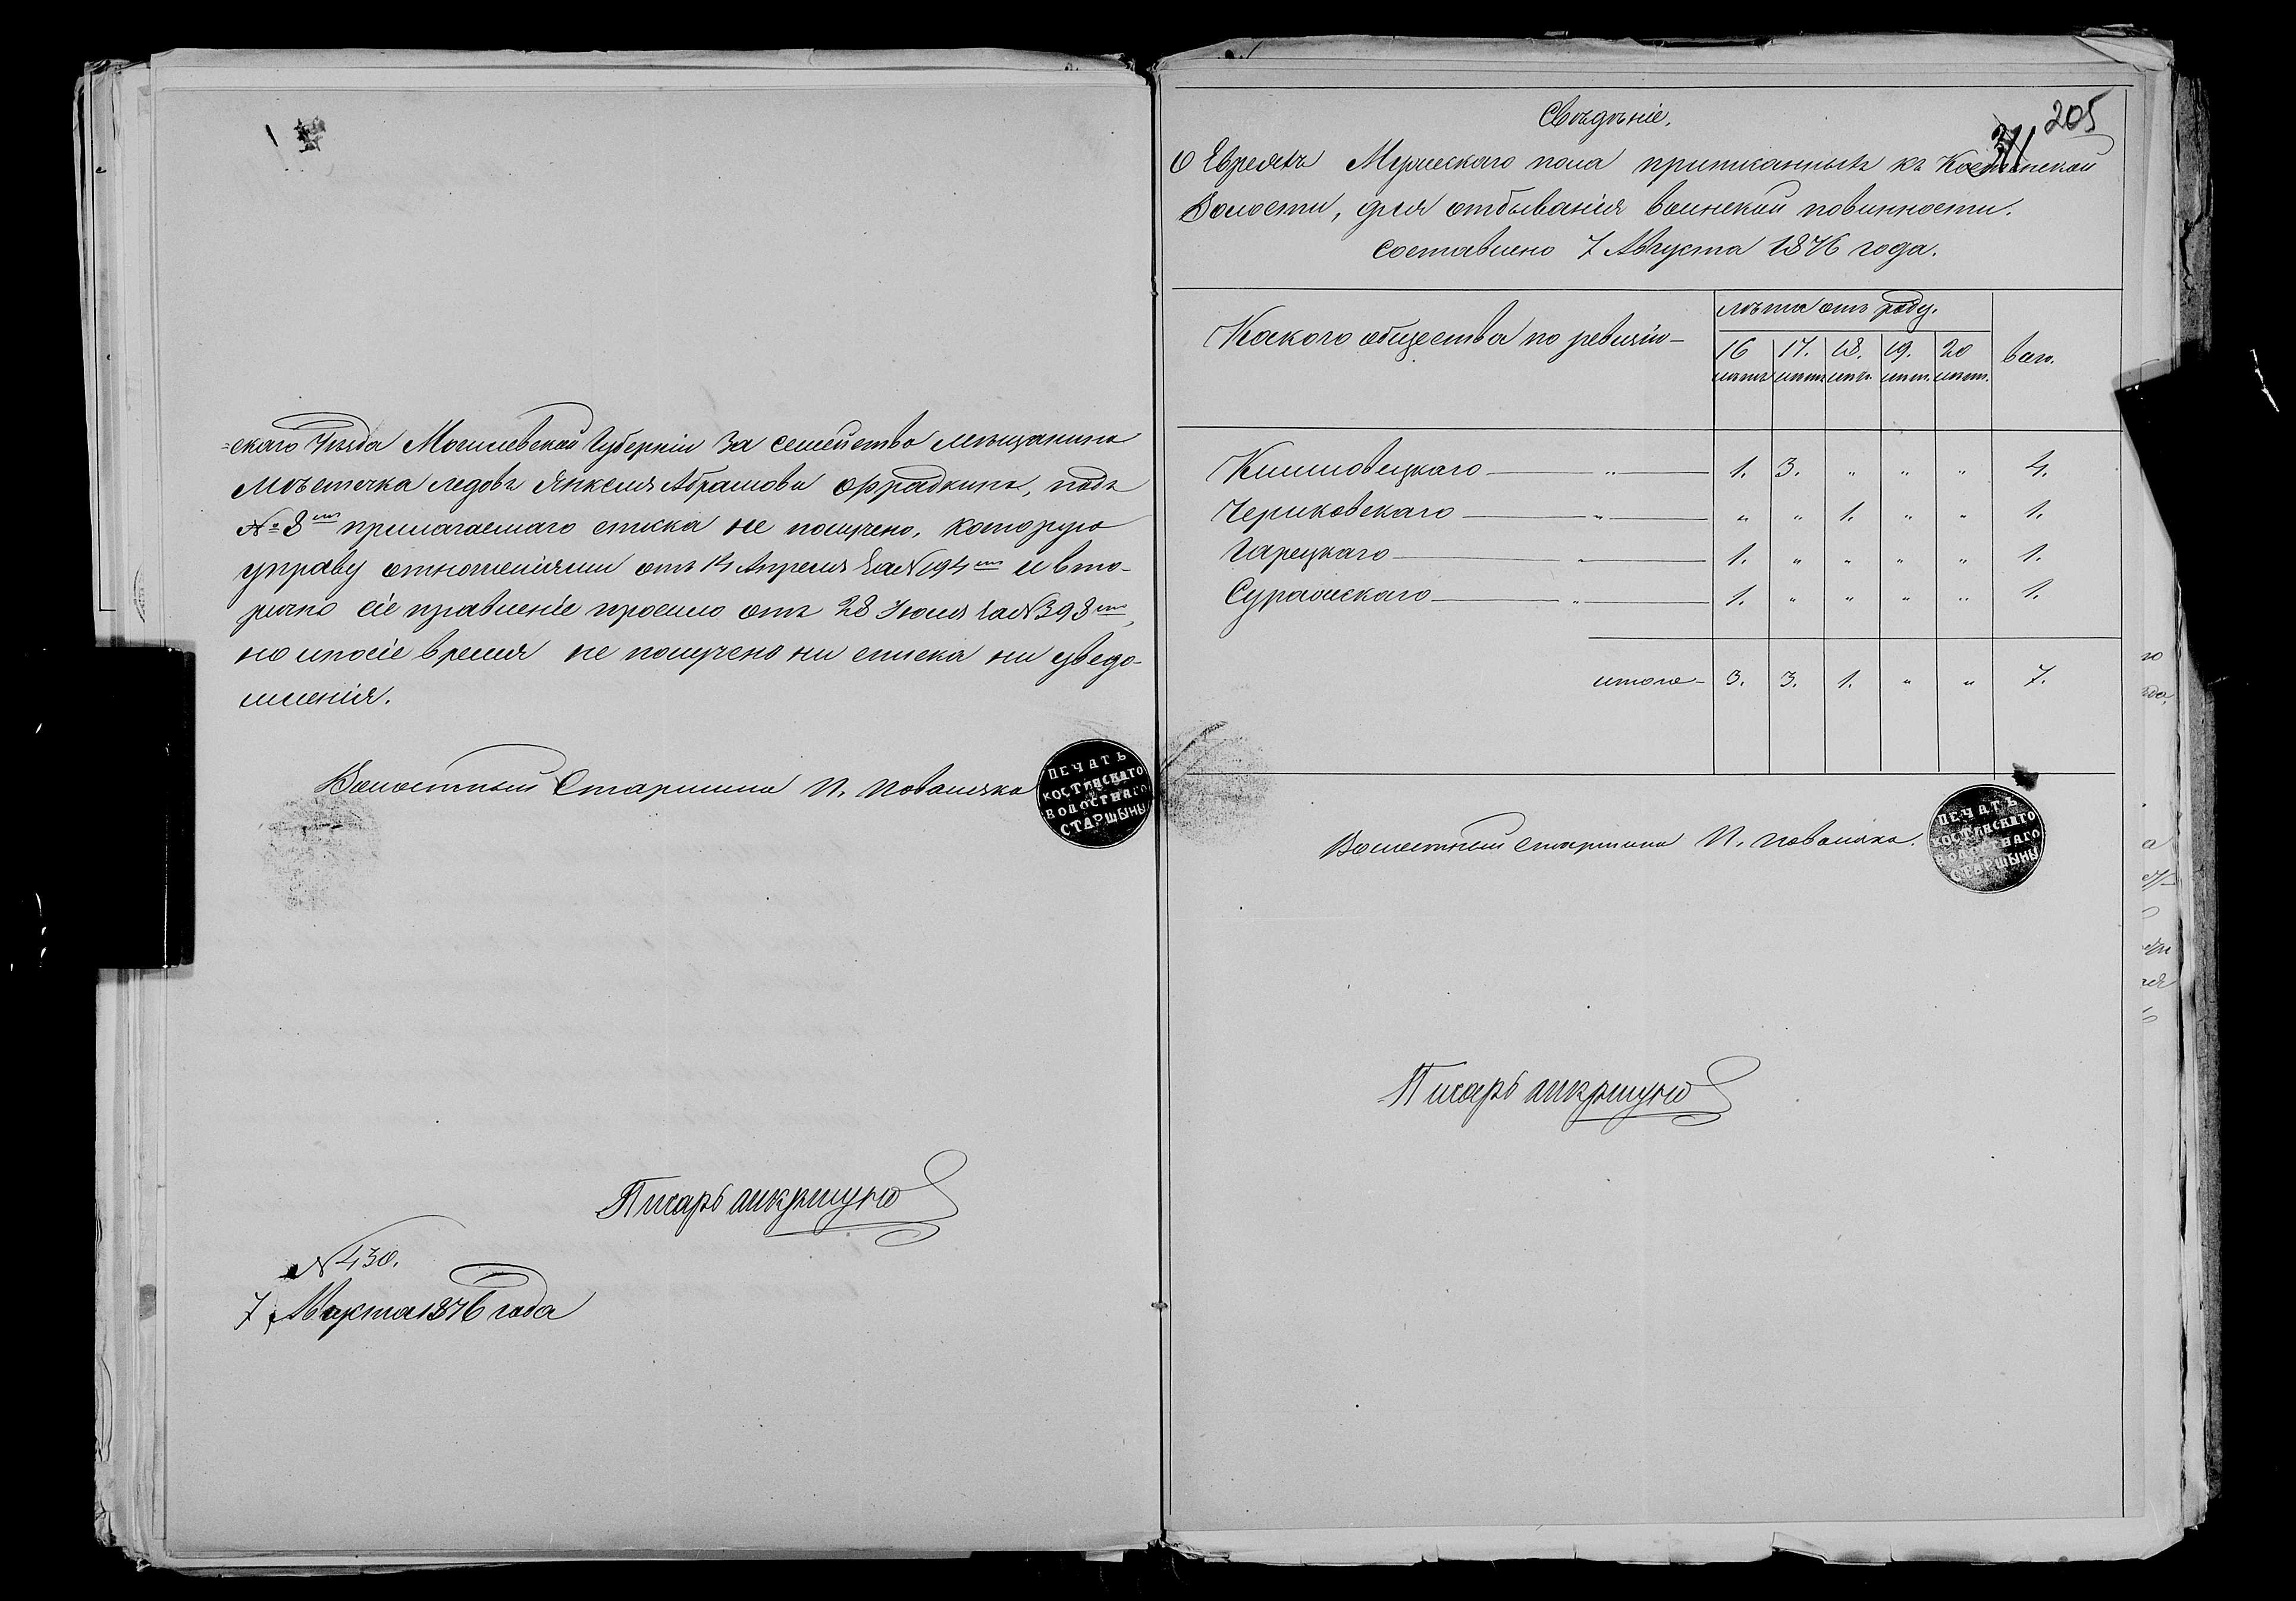 -скаго Уѣзда Могилевской Губерніи за семейство мѣщанина
мѣстечка Ледовъ Янкеля Абрамова Фрадкина, подъ
№ 8ᵐ прилагаемаго списка не получено, которую
управу отношеніями отъ 14 Апреля за № 194ᵐ и вто-
рично сіе правленіе просило отъ 28 Іюля за № 398ᵐ,
но и посіе время не получено ни списка ни уведо-
мленія.
Волостный Старшина П. Поваляка
ПЕЧАТЬ
КОСТИНСКАГО
ВОЛОСТНАГО
СТАРШЫНЫ
Писарь
№ 430.
7 Августа 1876 года
205
Свѣдѣніе.
О Евреяхъ Мужескаго пола приписанныхъ къ Костинской
Волости, для отбыванія воинской повинности.
составлено 7 Августа 1876 года.
Какого общества по ревизіи — лѣта отъ роду.
16 17. 18. 19. 20 всего.
лѣтъ лѣтъ лѣтъ лѣтъ. лѣтъ.
Климовецкаго — „ — 1. 3. „ „ „ 4.
Чериковскаго — „ — „ „ 1. „ „ 1.
Горецкаго — „ — 1. „ „ „ „ 1.
Суражскаго — „ — 1. „ „ „ „ 1.
итого - 3. 3. 1. „ „ 7.
Волостный старшина П. Поваляка.
ПЕЧАТЬ
КОСТИНСКАГО
ВОЛОСТНАГО
СТАРШЫНЫ
Писарь